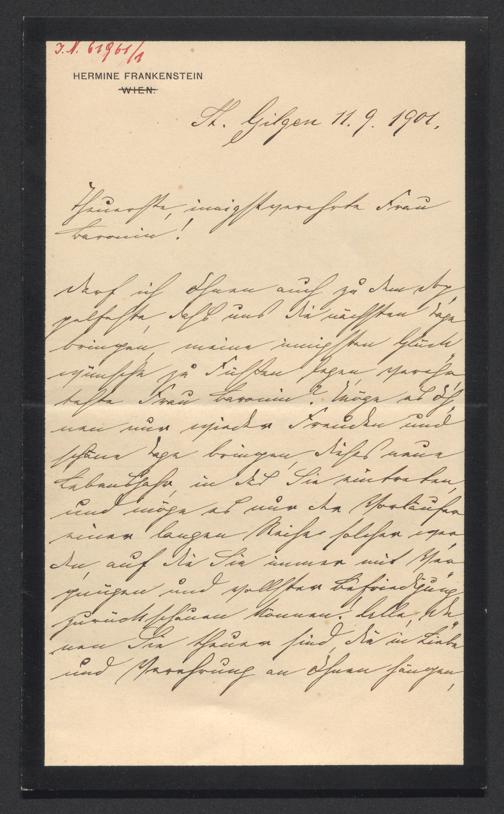 J.N. 61961/1
HERMINE FRANKENSTEIN
WIEN.
St. Gilgen 11. 9. 1901.
Theuerste, innigstverehrte Frau
Baronin!
Darf ich Ihnen auch zu dem
daß uns die nächsten Tage
bringen, meine innigsten Glück
wünsche zu Füßen legen, verehr
teste Frau Baronin? Möge es Ih
nen nur wieder Freuden und
schöne Tage bringen, dieses neue
Lebensjahr, in das Sie eintreten,
und möge es nur der Vorläufer
einer langen Reihe solcher wer
den, auf die Sie immer mit Ver
gnügen und vollster Befriedigung
zurückschauen können! Alle, de
nen Sie theuer sind, die in Liebe
und Verehrung an Ihnen hängen,